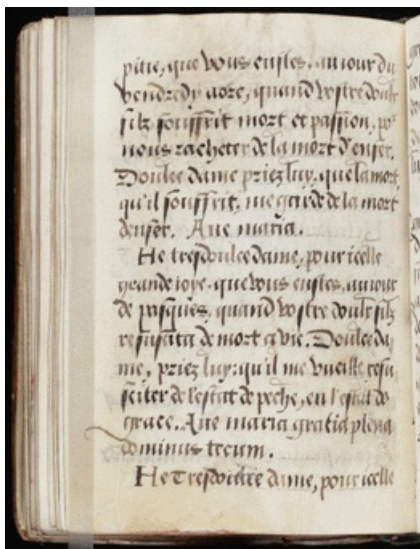 pitie, que vous eustes, au iour du
vendredy aore, quand vostre doulx
filz souffrit mort et passion, po^r
nous racheter de la mort d'enfer.
Doulce dame priez luy, que la mort,
qu'il souffrit, me garde de la mort
denfer. Aue maria.
He tresdoulce dame, pour icelle
grande ioye, que vous eustes, au iour
de pasques, quand vostre doulx filz
resuscita de mort a vie. Doulce da
me, priez luy: qu'il me vueille resu
sciter de l'estat de peche, en l'estat de
grace. Aue maria gratia plena
dominus tecum.
He Tresdoulce dame, pour icelle